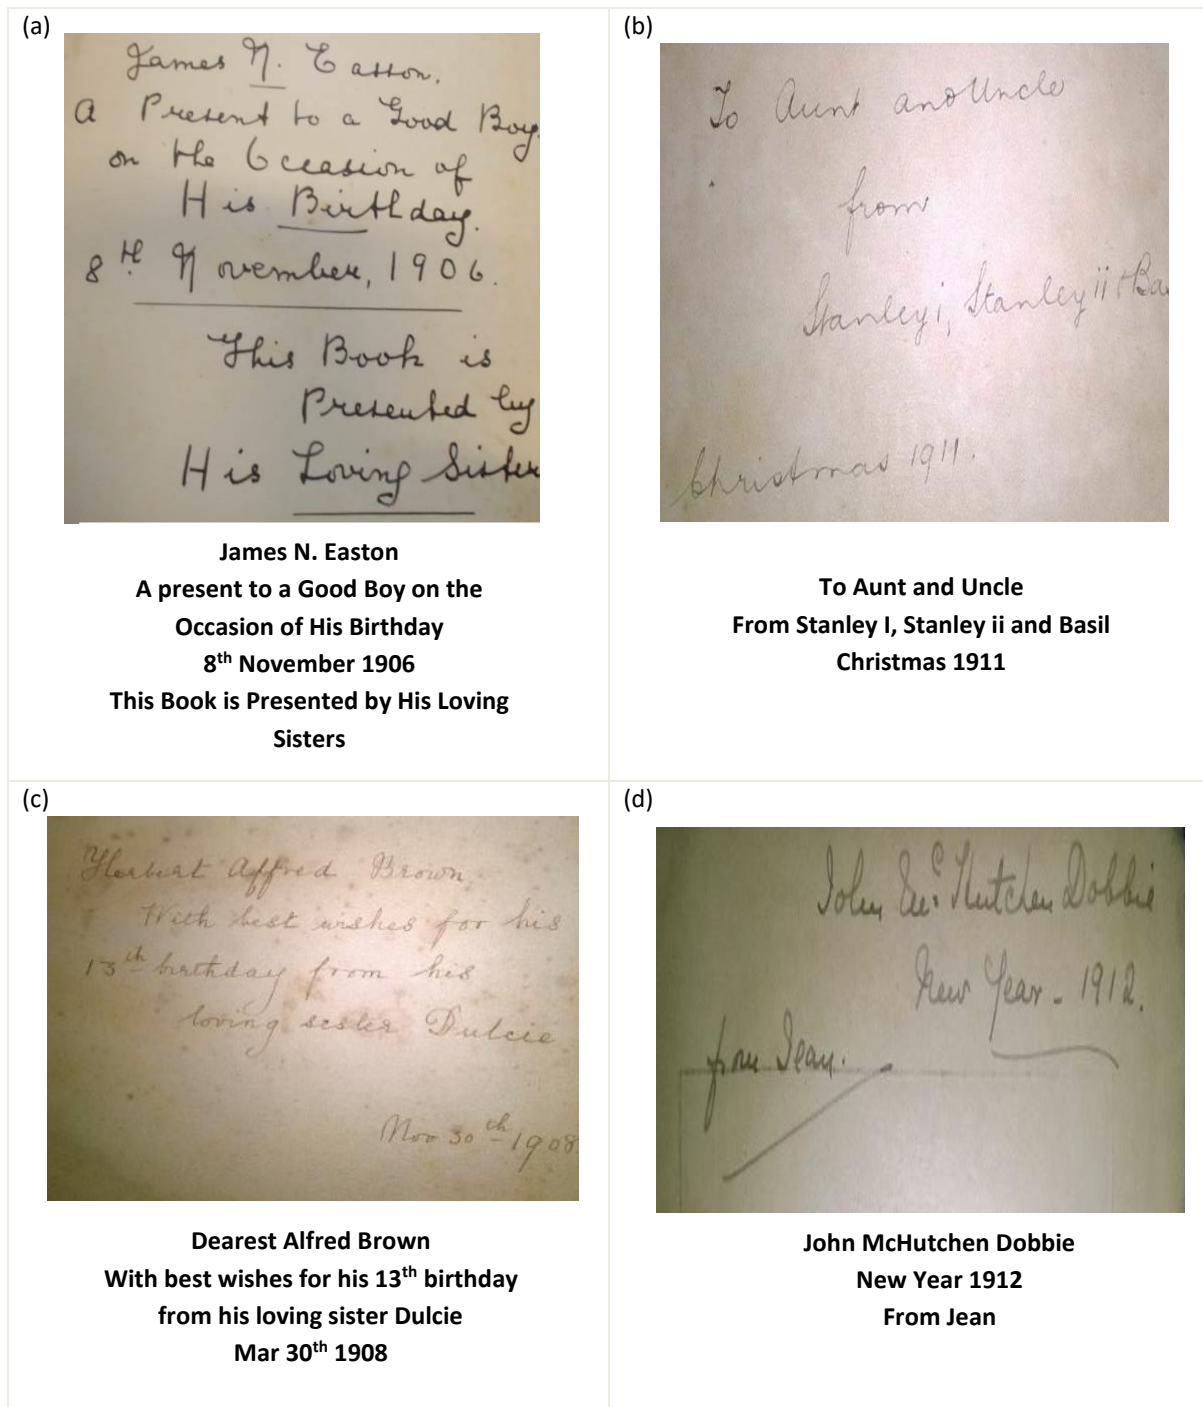 (a)
James N. Easson.
A Present to a Good Boy
on the Occasion of
His Birthday.
8th November, 1906.
This Book is
Presented by
His Loving Sister
James N. Easton
A present to a Good Boy on the
Occasion of His Birthday
8th November 1906
This Book is Presented by His Loving
Sisters
(b)
To Aunt and Uncle
from
Stanley i, Stanley ii + Ba
Christmas 1911.
To Aunt and Uncle
From Stanley I, Stanley ii and Basil
Christmas 1911
(c)
Herbert Alfred Brown
With best wishes for his
13th birthday from his
loving sister Dulcie
Nov 30th 1908
Dearest Alfred Brown
With best wishes for his 13th birthday
from his loving sister Dulcie
Mar 30th 1908
(d)
John McHutchen Dobbie
New Year - 1912.
from Jean.
John McHutchen Dobbie
New Year 1912
From Jean